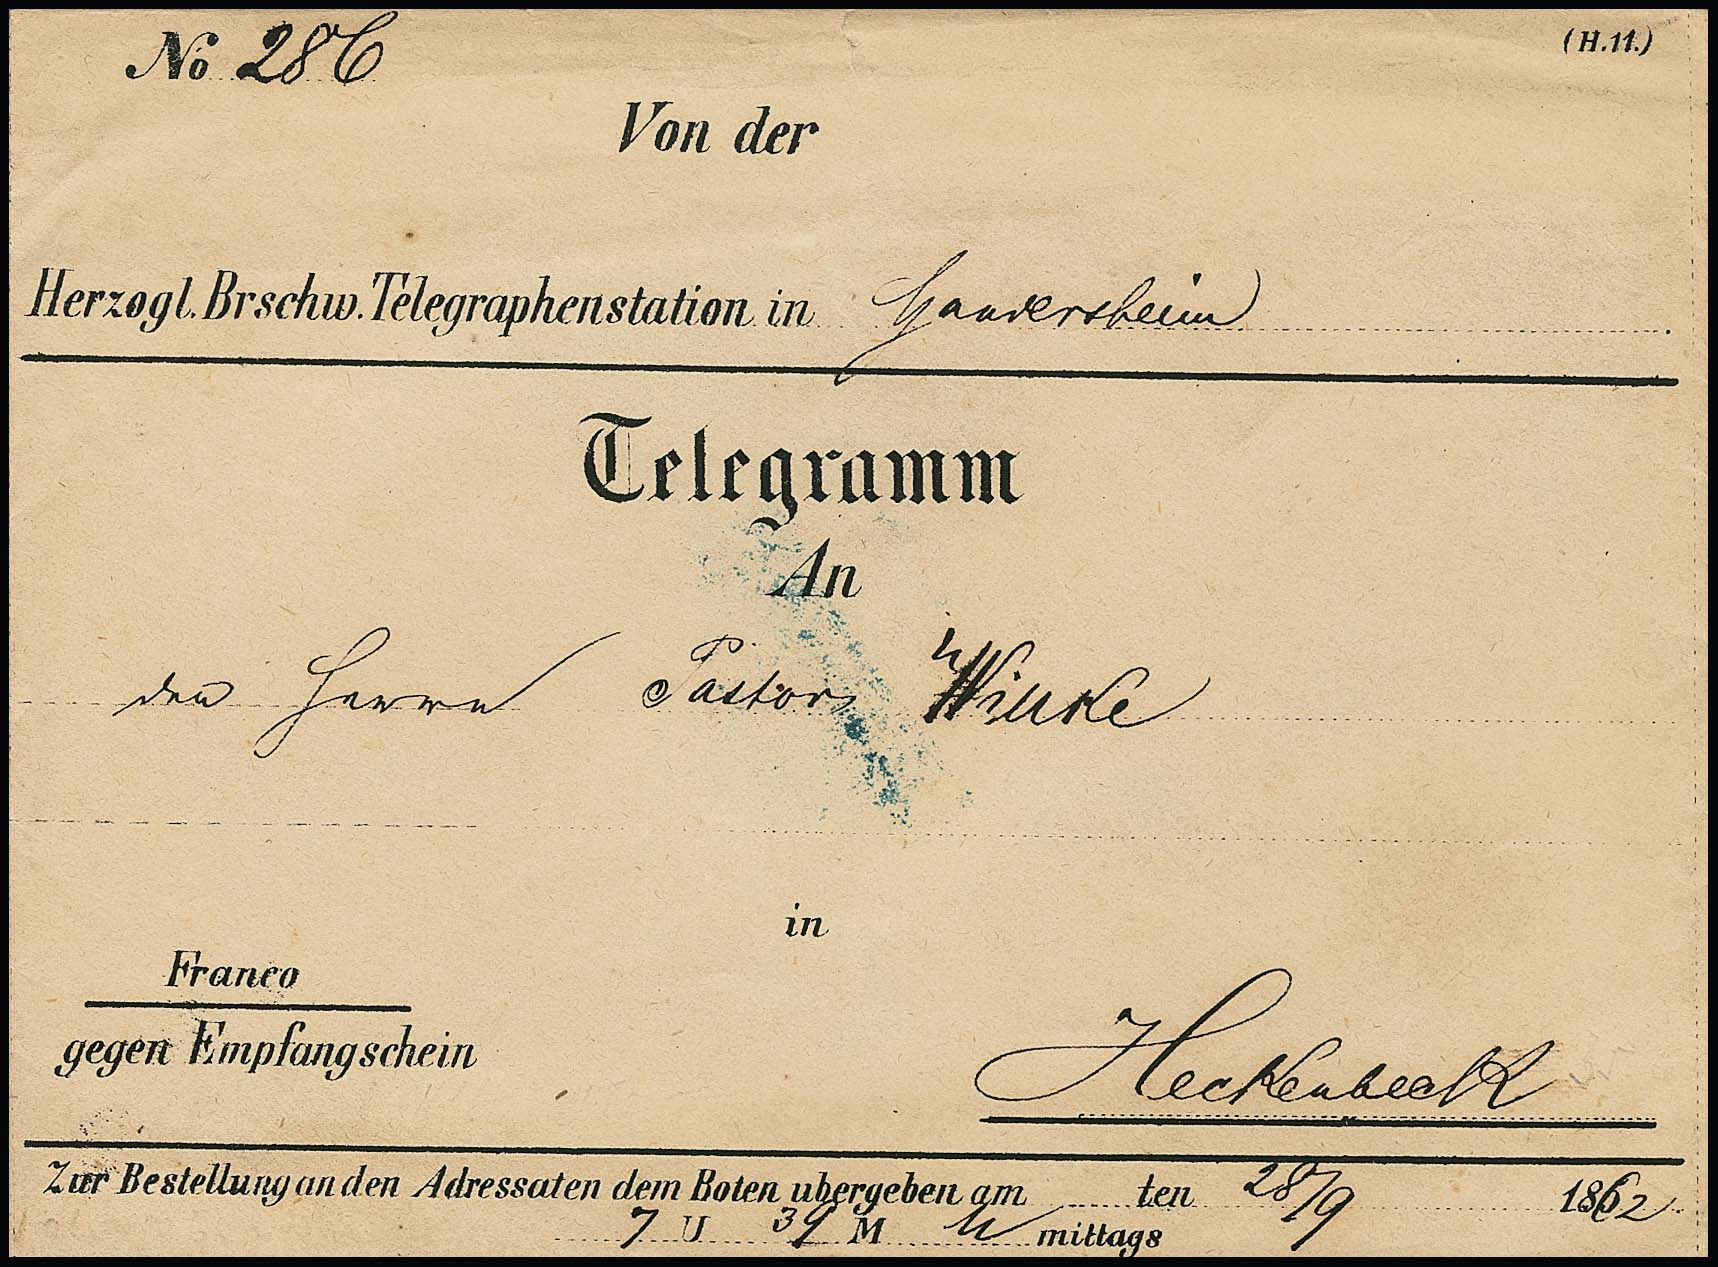 No 286
(H.11.)
Von der
Herzogl. Brschw. Telegraphenstation in Gandersheim.
Telegramm
An
den Herrn Pastor
in
Franco
gegen Empfangschein
Heckenbeck
Zur Bestellung an den Adressaten dem Boten ubergeben am ten 28/9 1862
7 U 39 M N mittags